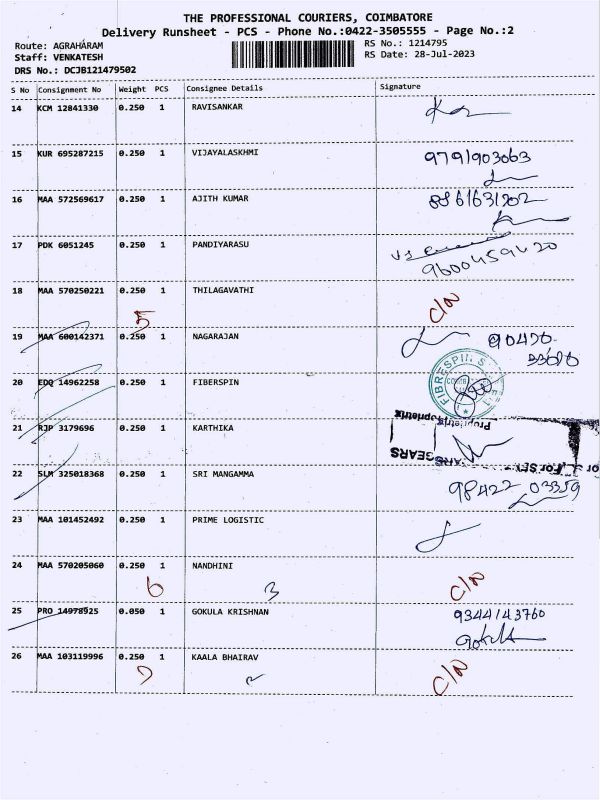 THE PROFESSIONAL COURIERS, COIMBATORE
Delivery Runsheet - PCS - Phone No.:0422-3505555 - Page No.:2
Route: AGRAHARAM
RS No.: 1214795
Staff: VENKATESH
RS Date: 28-Jul-2023
DRS No.: DCJB121479502
S No Consignment No Weight PCS Consignee Details Signature
14 KCM 12841330 0.250 1 RAVISANKAR
15 KUR 695287215 0.250 1 VIJAYALASKHMI 9791903063
16 MAA 572569617 0.250 1 AJITH KUMAR 8861631202
17 PDK 6051245 0.250 1 PANDIYARASU 9600459420
18 MAA 570250221 0.250 1 THILAGAVATHI C/N
5
19 MAA 600142371 0.250 1 NAGARAJAN 90470
20 EDQ 14962258 0.250 1 FIBERSPIN FIBRESPIN
21 RJP 3179696 0.250 1 KARTHIKA
Proprietrix
GEARS
22 SLM 325018368 0.250 1 SRI MANGAMMA 98422 03359
23 MAA 101452492 0.250 1 PRIME LOGISTIC
24 MAA 570205060 0.250 1 NANDHINI C/N
6 3
25 PRO 14978925 0.050 1 GOKULA KRISHNAN 9344143760
Gokula
26 MAA 103119996 0.250 1 KAALA BHAIRAV C/N
7